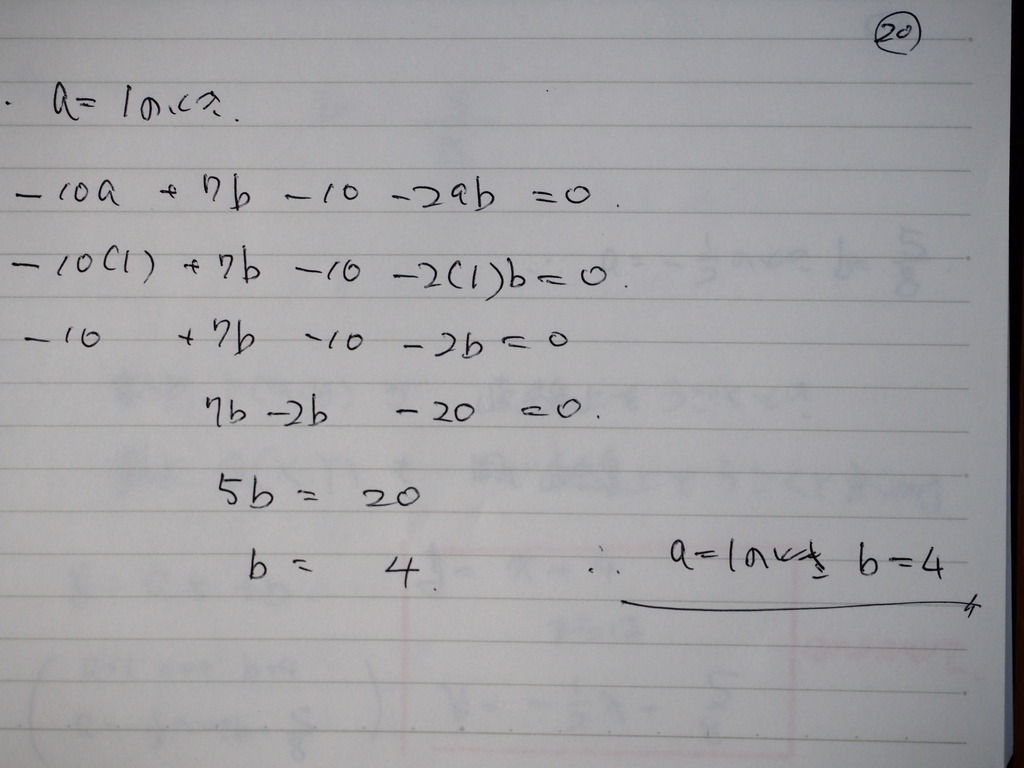 20
・ a=1のとき.
-10a + 7b -10 -2ab = 0.
-10(1) + 7b -10 -2(1)b = 0.
-10 + 7b -10 -2b = 0
7b -2b -20 = 0.
5b = 20
b = 4. ∴ a=1のとき b=4